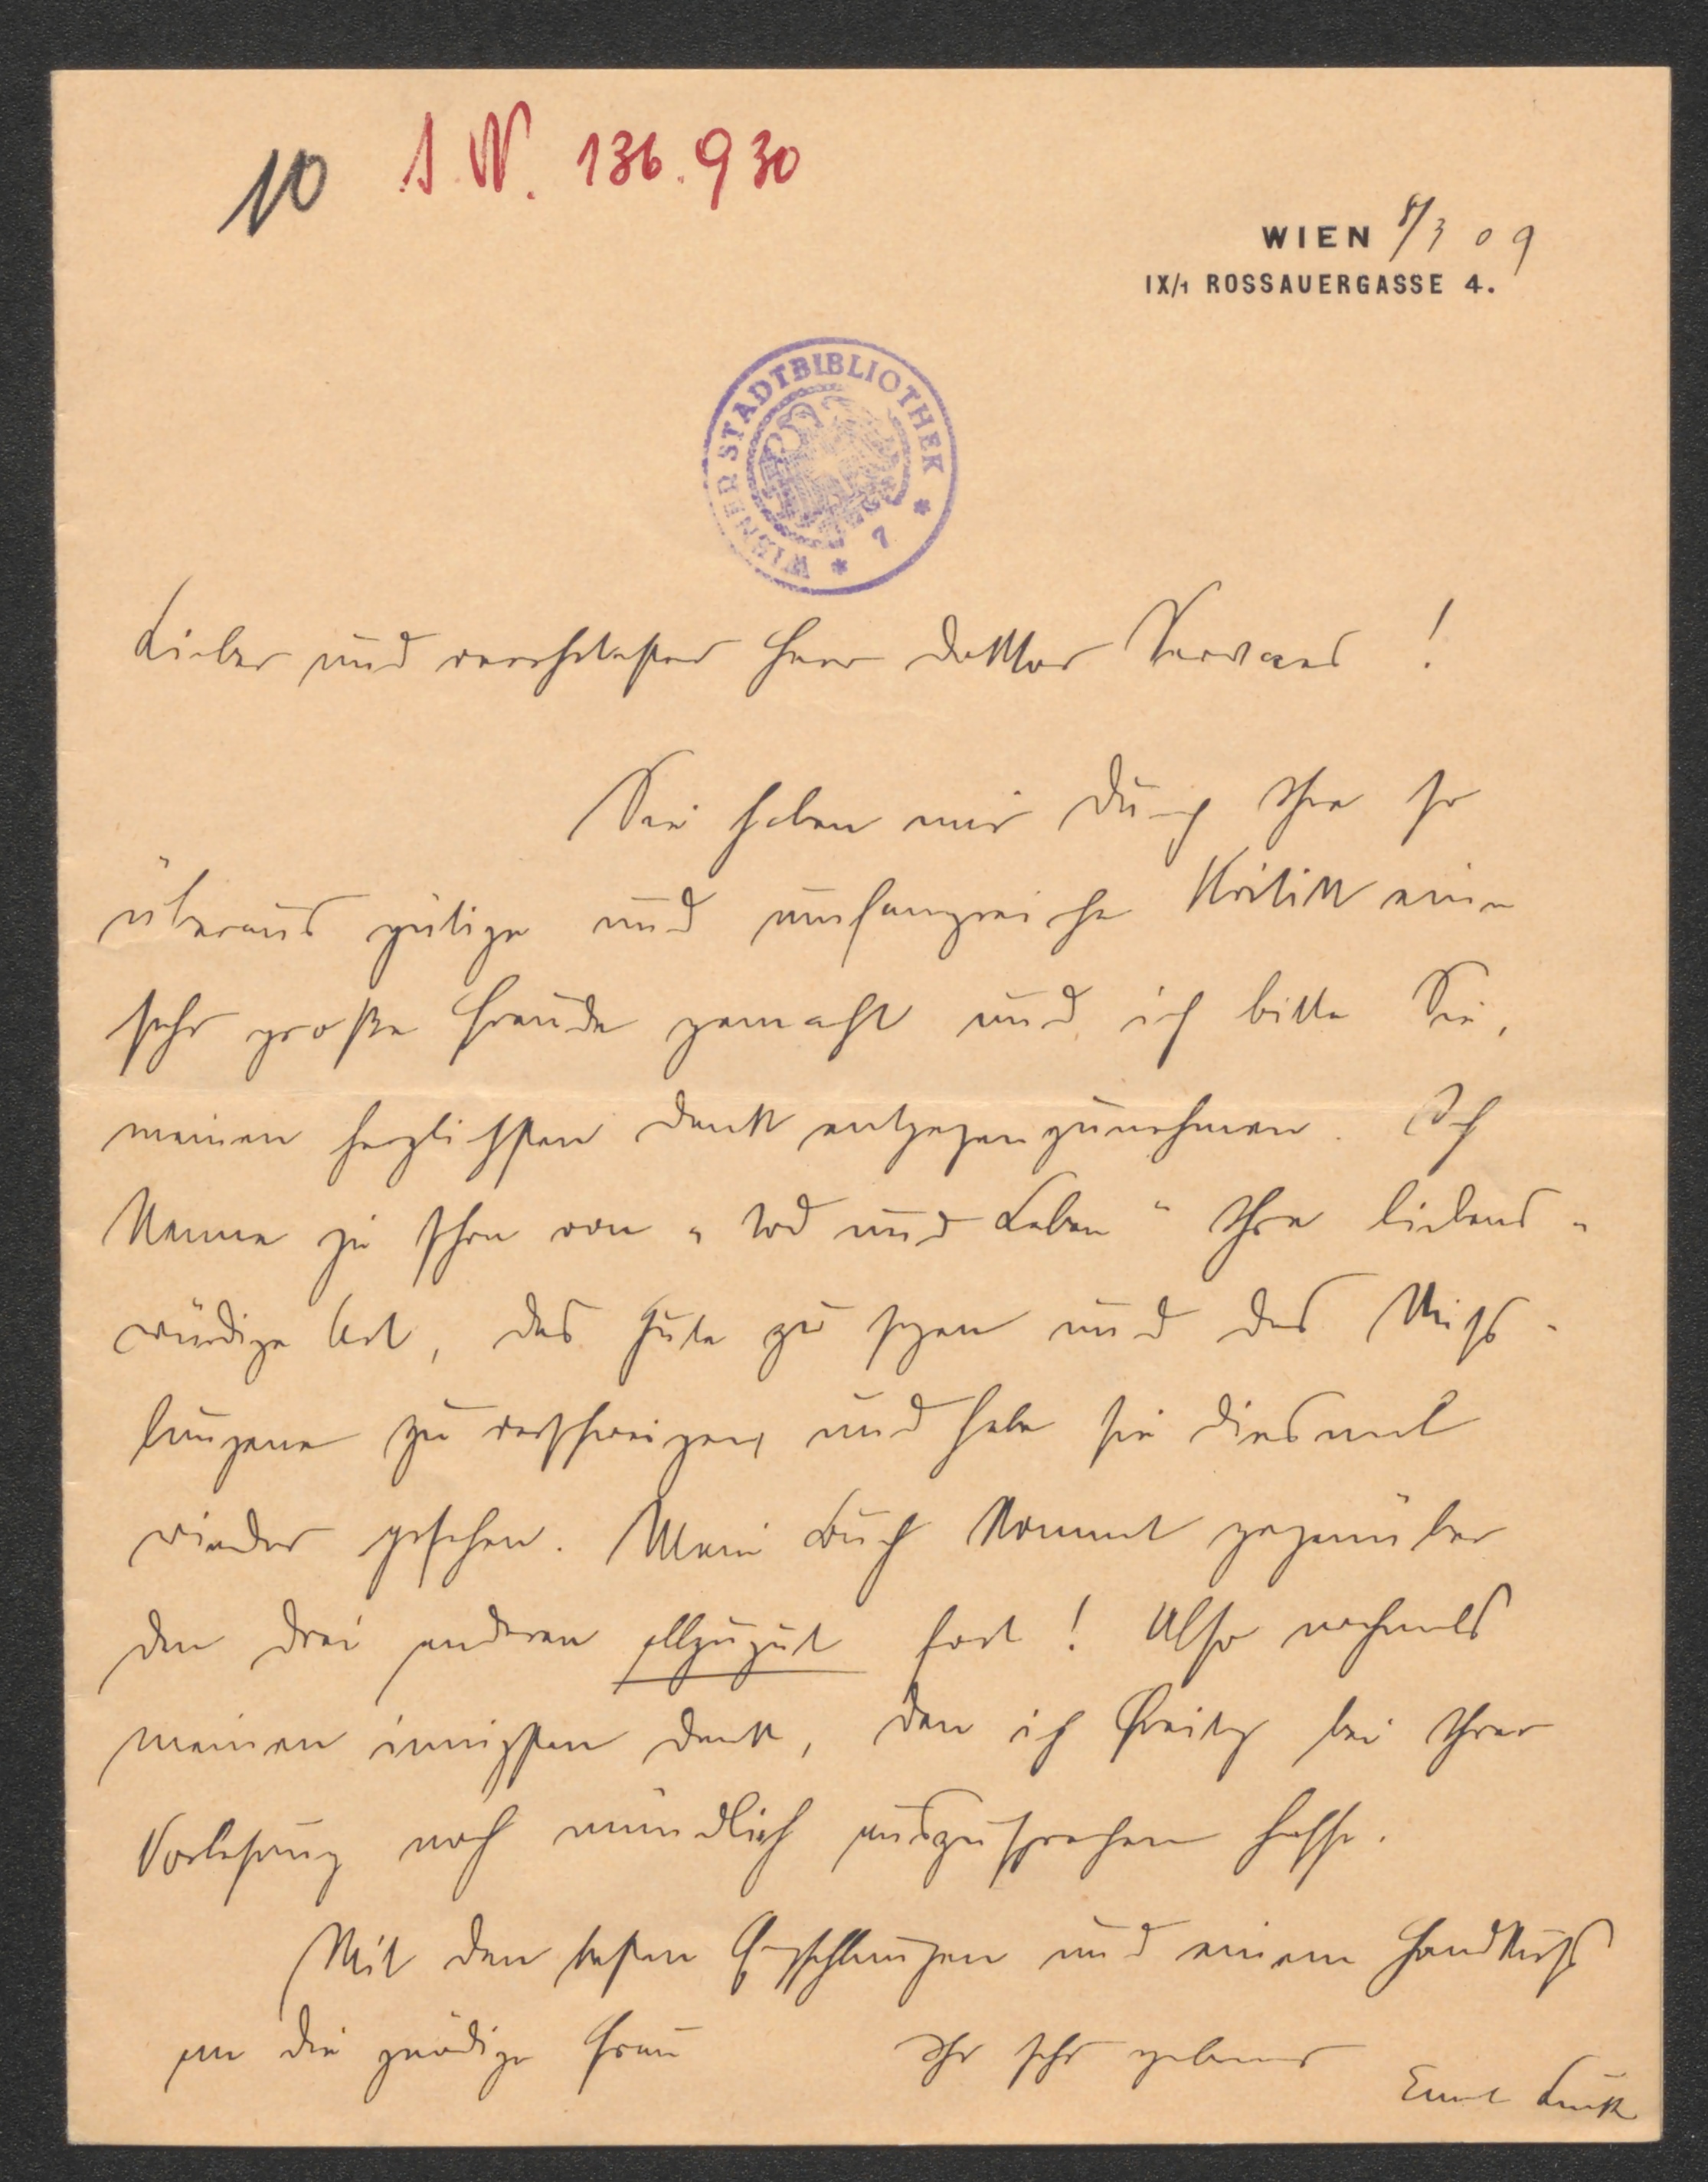 10 I.N. 136.930
WIEN 8/3 09
IX/1 ROSSAUERGASSE 4.
WIENER STADTBIBLIOTHEK * 7 *
Lieber und verehrtester Herr Doktor Servaes!
Sie haben mir durch Ihre so
überaus gütige und umfangreiche Kritik eine
sehr große Freude gemacht und ich bitte Sie,
meinen herzlichsten Dank entgegenzunehmen. Ich
kenne ja schon von „Tod und Leben" Ihre liebens-
würdige Art, das Gute zu sagen und das Miß-
lungene zu verschweigen und habe sie diesmal
wieder gesehen. Mein Buch kommt gegenüber
den drei anderen allzugut fort! Also nochmals
meinen innigsten Dank, den ich Freitag bei Ihrer
Vorlesung noch mündlich auszusprechen hoffe.
Mit den besten Empfehlungen und einem Handkuß
an die gnädige Frau
Ihr sehr ergebener
Emil Lucka